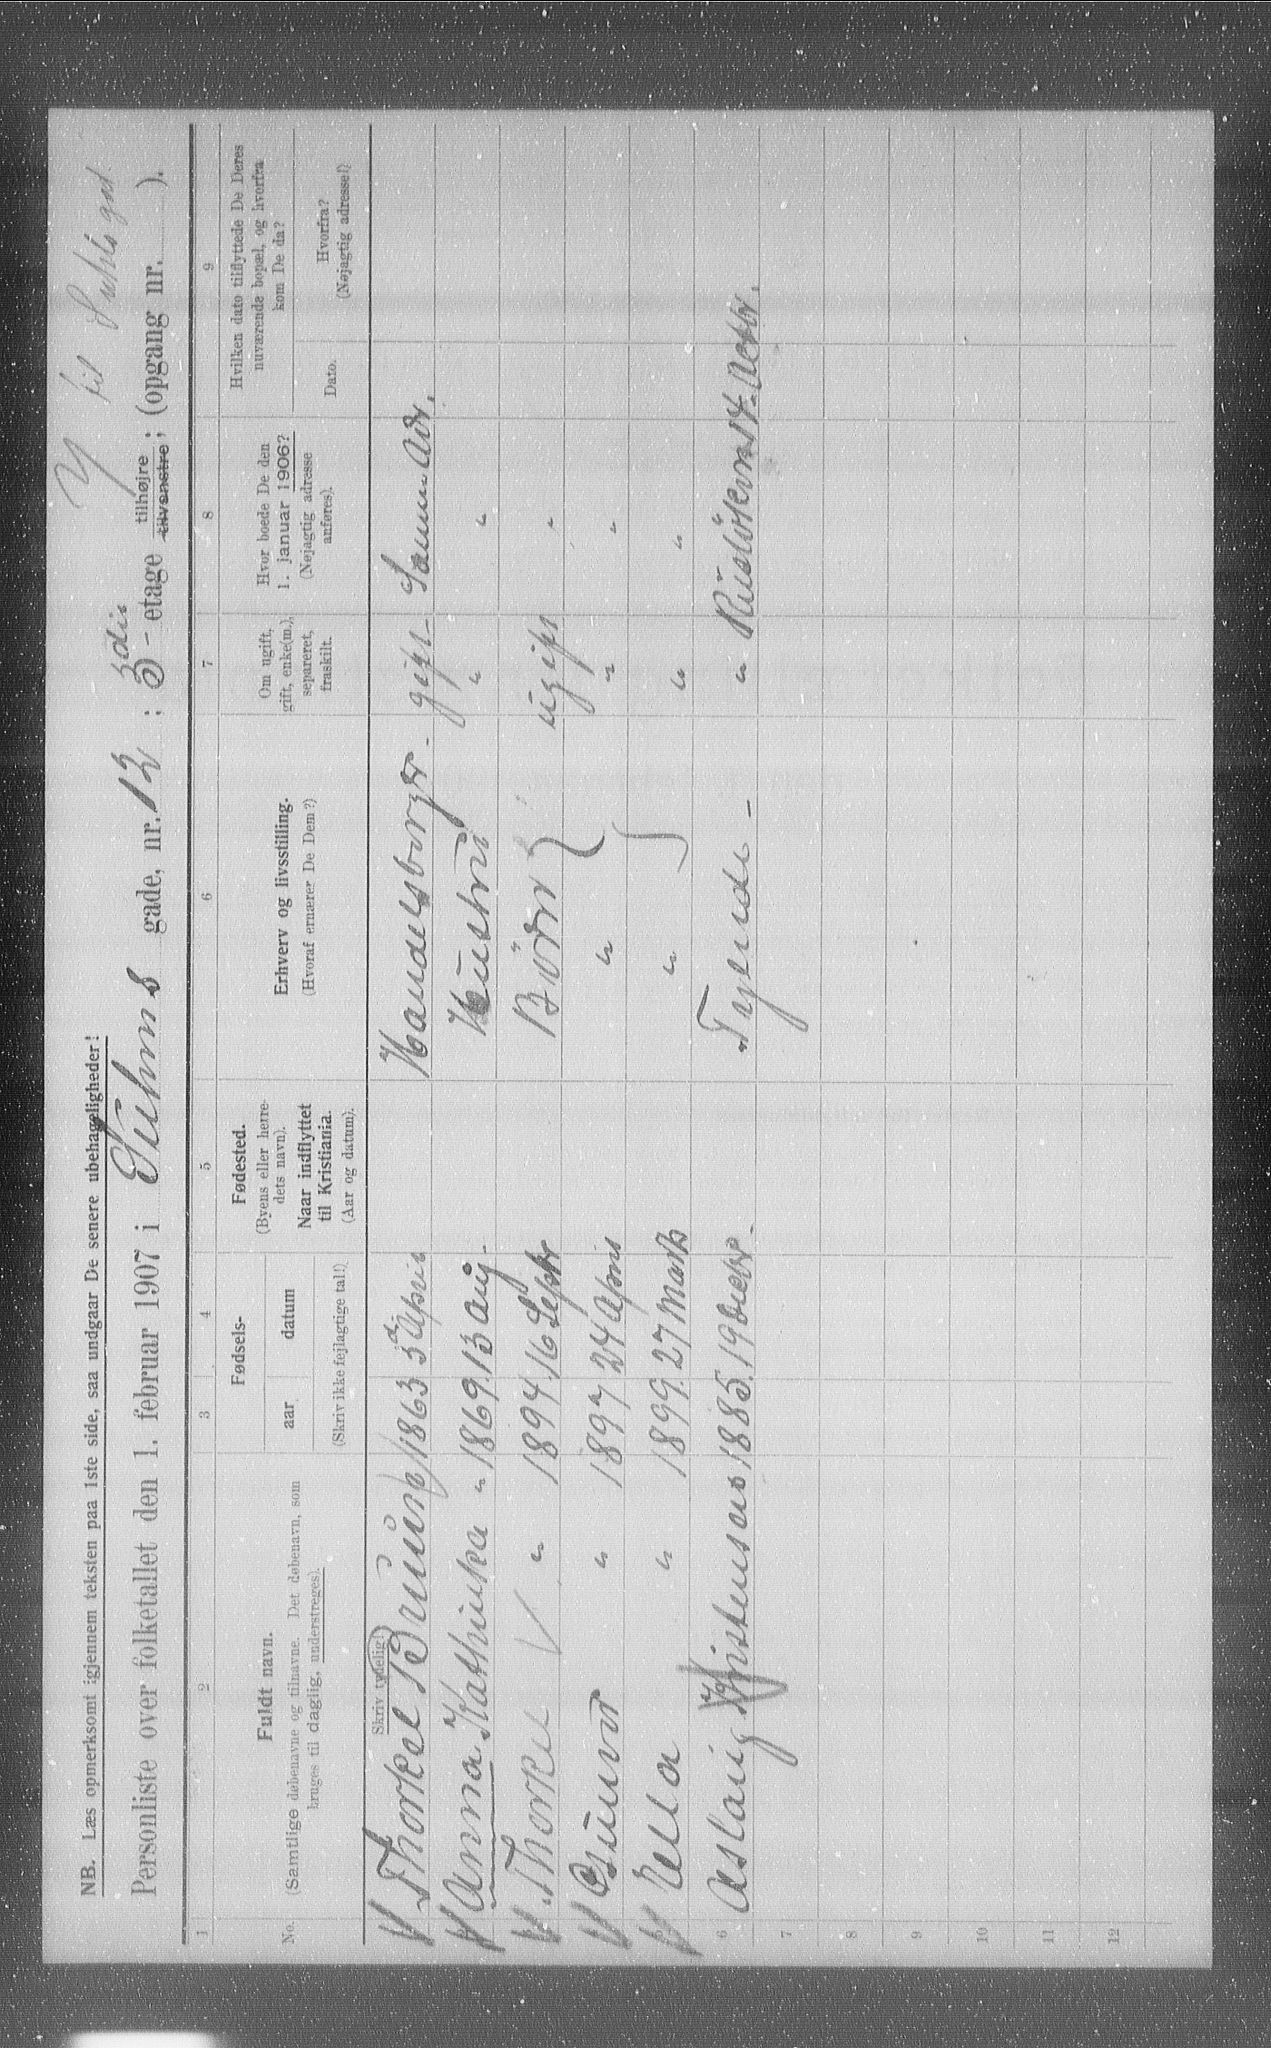 NB. Læs opmerksomt igjennem teksten paa 1ste side, saa undgaar De senere ubehageligheder!
Y til
Personliste over folketallet den 1. februar 1907 i Suhms gade, nr. 12 ; 3die - etage tilhøjre ; (opgang nr. ).
tilvenstre
1 2 3 4 5 6 7 8 9
No. Fuldt navn.
(Samtlige døbenavne og tilnavne. Det døbenavn, som
bruges til daglig, understreges).
Skriv tydelig!
Fødsels-
aar datum
(Skriv ikke fejlagtige tal!)
Fødested.
(Byens eller herre-
dets navn).
Naar indflyttet
til Kristiania.
(Aar og datum).
Erhverv og livsstilling.
(Hvoraf ernærer De Dem?)
Om ugift,
gift, enke(m.),
separeret,
fraskilt.
Hvor boede De den
1. januar 1906?
(Nøjagtig adresse
anføres).
Hvilken dato tilflyttede De Deres
nuværende bopæl, og hvorfra
kom De da?
Dato. Hvorfra?
(Nøjagtig adresse!)
Thorkel Bruun 1863 3 April Handelsborger - gift - Samme Adr.
Anna Kathinka " 1869. 13 Aug. Hustru " "
Thorkel " 1894. 16 Septbr Börn ugift "
Gunvor " 1897 24 April " " "
Ella " 1899. 27 Marts " " "
6 Aslaug Kristensen 1885. 19 Tyende - "
7
8
9
10
11
12